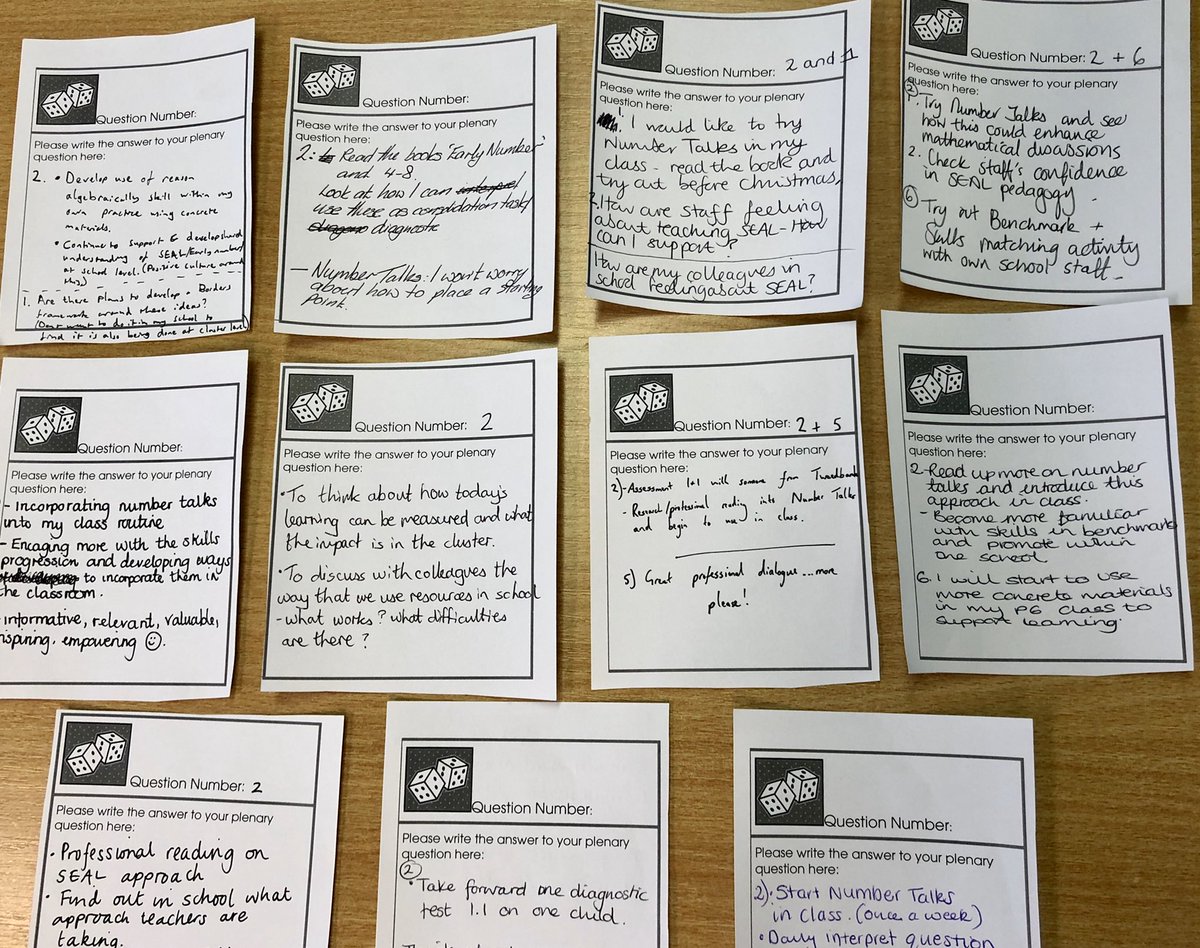 Question Number:
Please write the answer to your plenary
question here:
2. • Develop use of reason
algebraically skill within my
own practice using concrete
materials.
• Continue to support & develop shared
understanding of SEAL/Early number
at school level. (Positive culture around
this)
1. Are there plans to develop a Borders
framework around these ideas?
(Don't want to do it in my school to
find it is also being done at cluster level)
Question Number:
Please write the answer to your plenary
question here:
2. Read the books 'Early Number'
and 4-8.
Look at how I can
use these as consolidation task/
diagnostic
— Number Talks: I won't worry
about how to place a starting
point.
Question Number: 2 and 1
Please write the answer to your plenary
question here:
1. I would like to try
Number Talks in my
class - read the book and
try out before Christmas.
2. How are staff feeling
about teaching SEAL - How
can I support?
How are my colleagues in
school feeling about SEAL?
Question Number: 2 + 6
Please write the answer to your plenary
question here:
②
1. Try Number Talks and see
how this could enhance
mathematical discussions
2. Check staff's confidence
in SEAL pedagogy.
⑥ Try out Benchmark +
Skills matching activity
with own school staff -
Question Number:
Please write the answer to your plenary
question here:
- Incorporating number talks
into my class routine
- Engaging more with the skills
progression and developing ways
to incorporate them in
the classroom.
- informative, relevant, valuable,
inspiring, empowering ☺.
Question Number: 2
Please write the answer to your plenary
question here:
• To think about how today's
learning can be measured and what
the impact is in the cluster.
• To discuss with colleagues the
way that we use resources in school
- what works? what difficulties
are there?
Question Number: 2 + 5
Please write the answer to your plenary
question here:
2) - Assessment 1a1 will someone from Tweedbank
- Research/professional reading into Number Talks
and begin to use in class.
5) Great professional dialogue...more
please!
Question Number:
Please write the answer to your plenary
question here:
2. - Read up more on number
talks and introduce this
approach in class.
- Become more familiar
with skills in benchmark
and promote within
one school
6. I will start to use
more concrete materials
in my P6 class to
support learning.
Question Number: 2
Please write the answer to your plenary
question here:
• Professional reading on
SEAL approach
• Find out in school what
approach teachers are
taking.
Question Number:
Please write the answer to your plenary
question here:
②
• Take forward one diagnostic
test 1.1 on one child.
Question Number:
Please write the answer to your plenary
question here:
2) • Start Number Talks
in class. (once a week)
• Daily interpret question